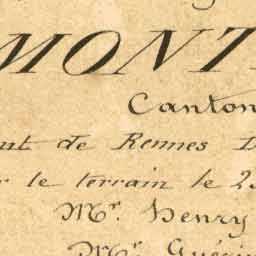 MONT
Canton
nt de Rennes D
r le terrain le 2
Mr. Henry
Mr. Guérin